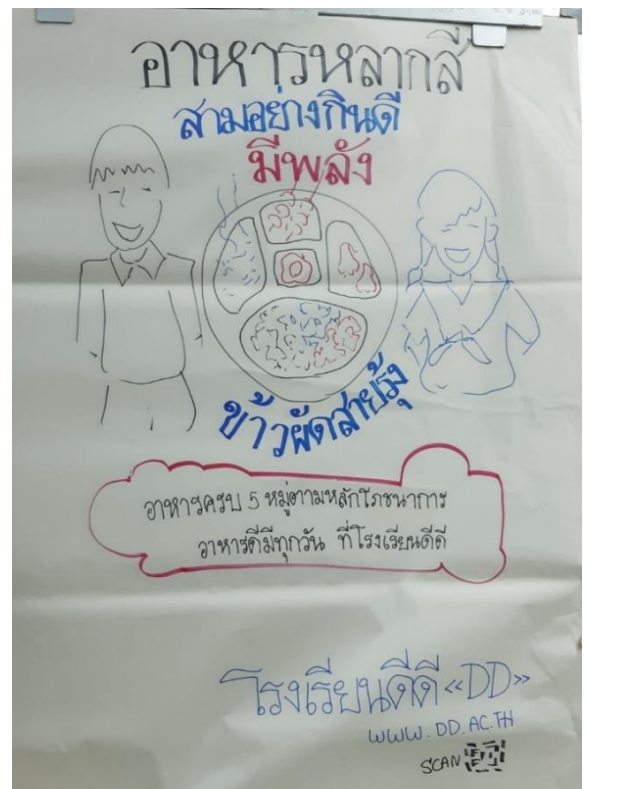 อาหารหลากสี
สามอย่างกินดี
มีพลัง
ข้าวผัดสายรุ้ง
อาหารครบ 5 หมู่ตามหลักโภชนาการ
อาหารดีมีทุกวัน ที่โรงเรียนดีดี
โรงเรียนดีดี «DD»
WWW.DD.AC.TH
SCAN